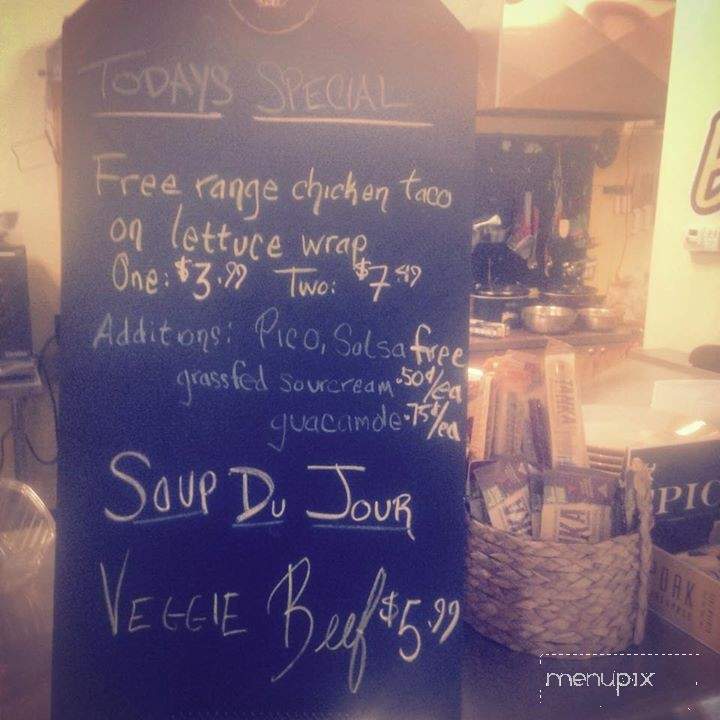 TODAYS SPECIAL
Free range chicken taco
on lettuce wrap
One: $3.99 Two: $7.49
Additions: Pico, Salsa free
grassfed sourcream .50¢/ea
guacamole .75¢/ea
SOUP DU JOUR
VEGGIE Beef $5.99
TANKA
EPIC
PORK
menupix